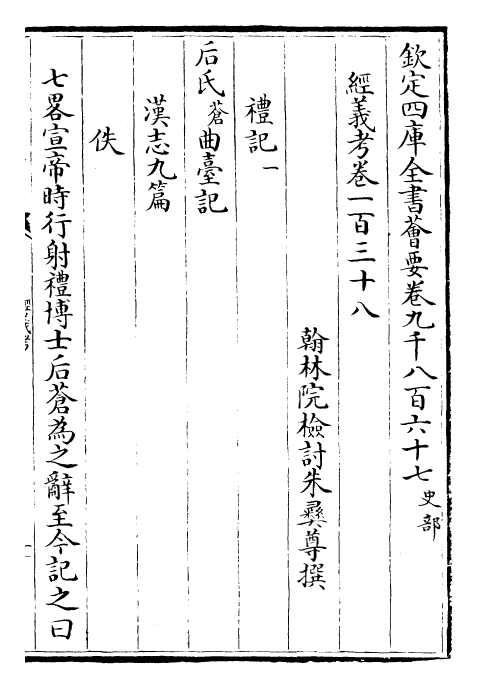 欽定四庫全書薈要卷九千八百六十七 史部
經義考卷一百三十八
翰林院檢討朱彝尊撰
禮記一
后氏蒼曲臺記
漢志九篇
佚
七畧宣帝時行射禮博士后蒼為之辭至今記之曰